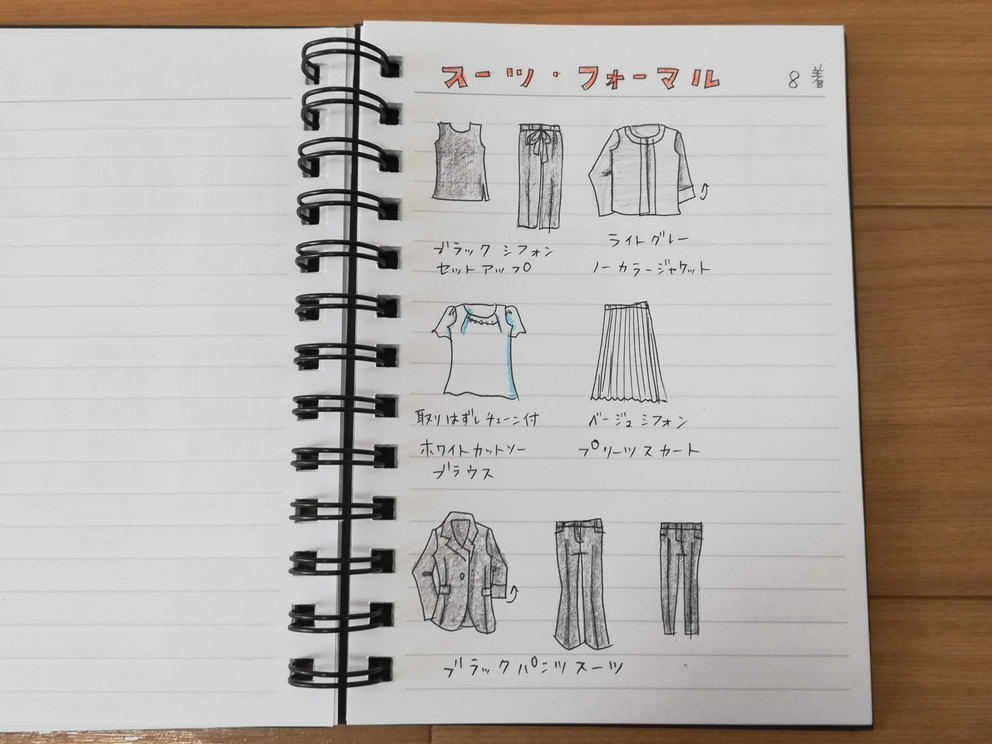 スーツ・フォーマル 8着
ブラック シフォン
セットアップ
ライトグレー
ノーカラージャケット
取りはずしチェーン付
ホワイトカットソー
ブラウス
ベージュシフォン
プリーツスカート
ブラックパンツスーツ